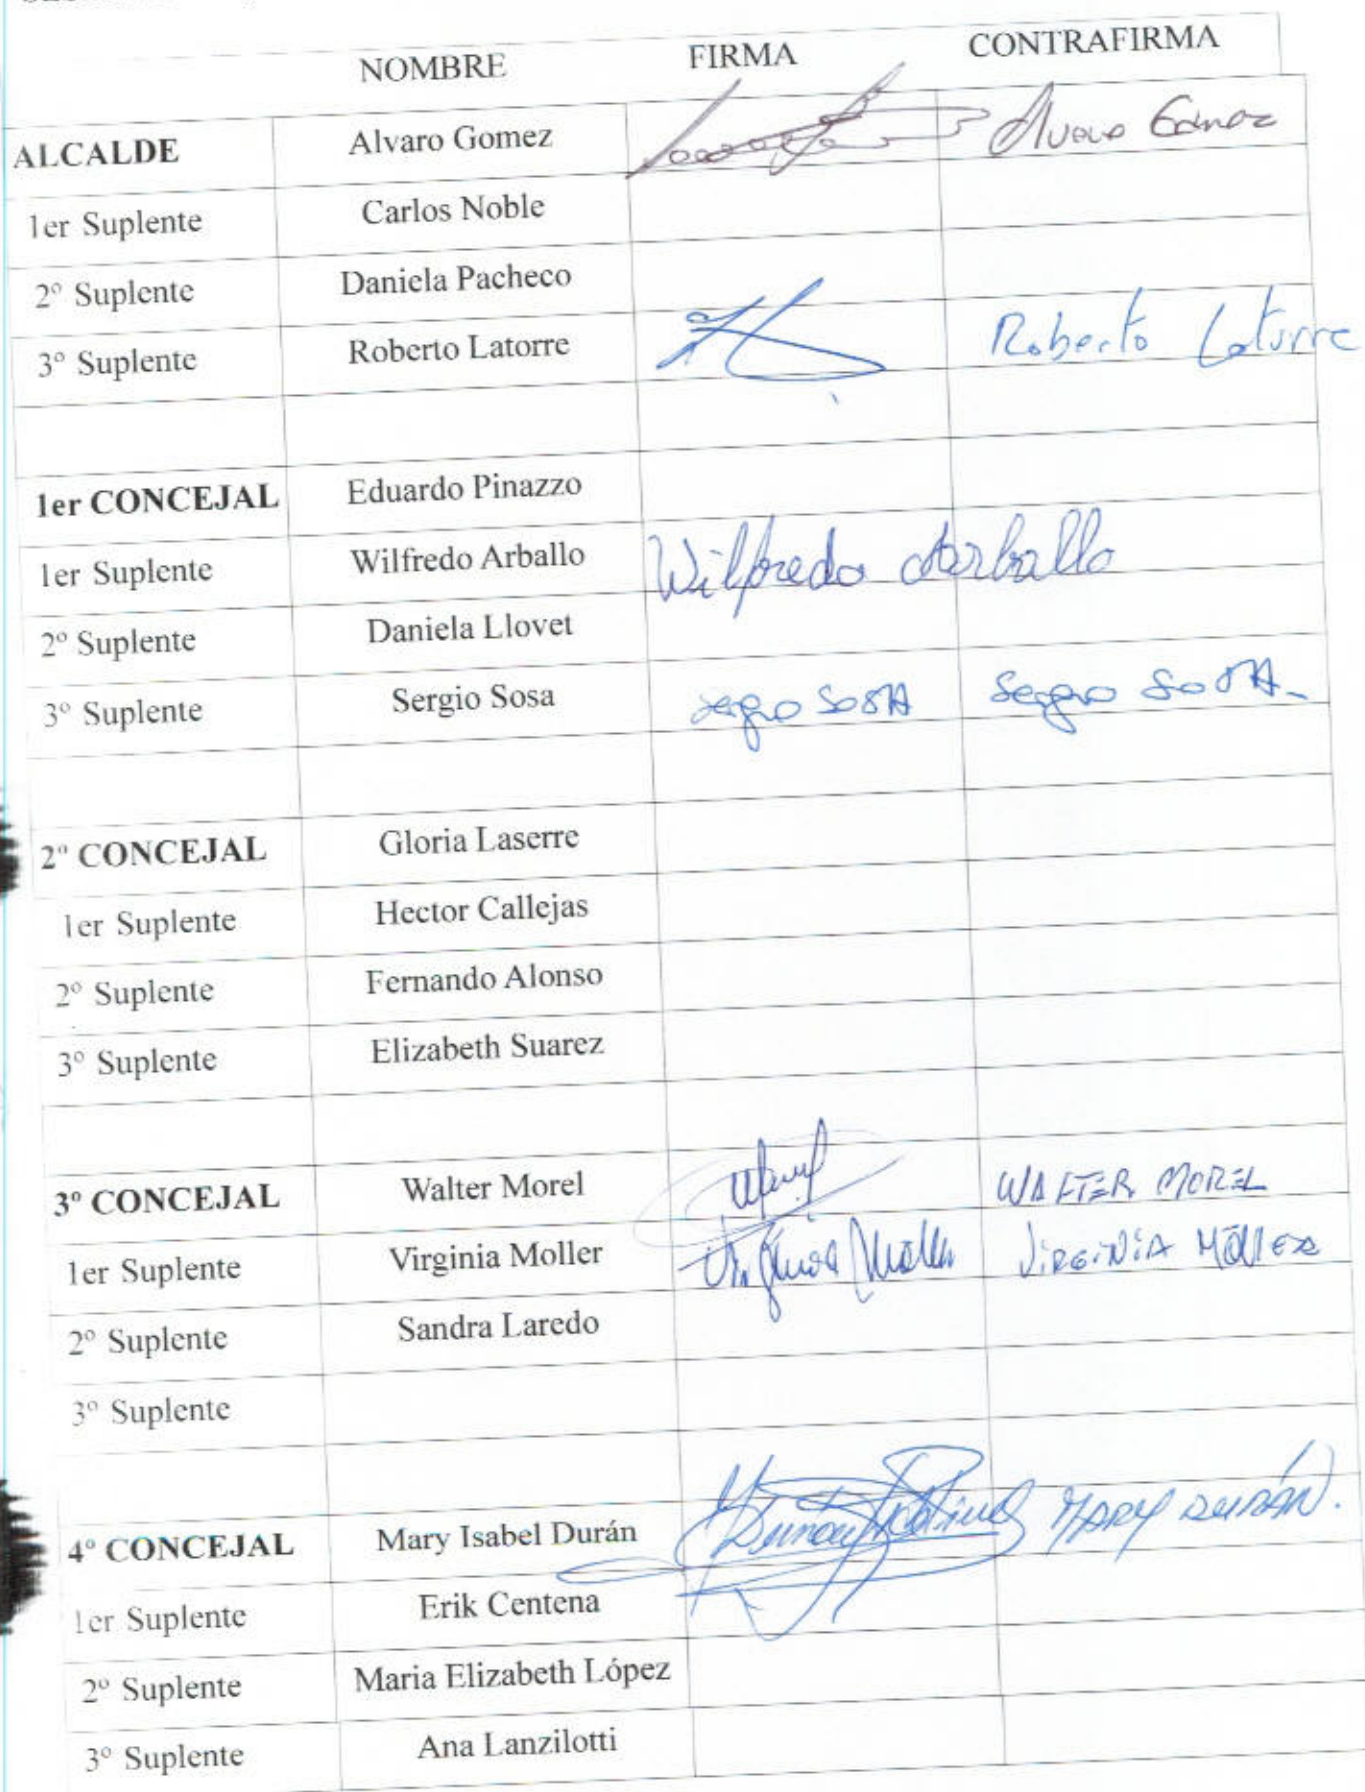 NOMBRE FIRMA CONTRAFIRMA
ALCALDE Alvaro Gomez Alvaro Gomez
1er Suplente Carlos Noble
2º Suplente Daniela Pacheco
3º Suplente Roberto Latorre Roberto Latorre
1er CONCEJAL Eduardo Pinazzo
1er Suplente Wilfredo Arballo Wilfredo Arballo
2º Suplente Daniela Llovet
3º Suplente Sergio Sosa Sergio SosA Sergio SosA-
2º CONCEJAL Gloria Laserre
1er Suplente Hector Callejas
2º Suplente Fernando Alonso
3º Suplente Elizabeth Suarez
3º CONCEJAL Walter Morel WALTER MOREL
1er Suplente Virginia Moller Virginia Moller ViRGiNiA MöllER
2º Suplente Sandra Laredo
3º Suplente
4º CONCEJAL Mary Isabel Durán MARY DURÁN.
1er Suplente Erik Centena
2º Suplente Maria Elizabeth López
3º Suplente Ana Lanzilotti